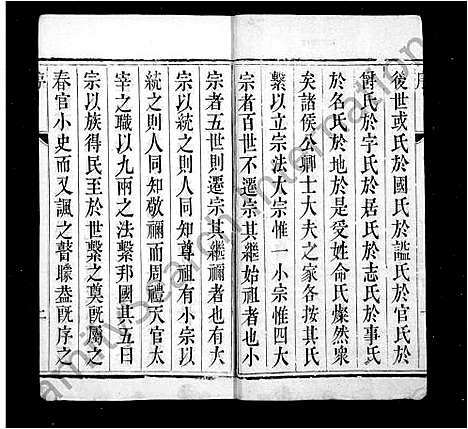 後世或氏於國氏於謚氏於官氏於
爵氏於字氏於居氏於志氏於事氏
於名氏於地於是受姓命氏燦然眾
矣諸侯公卿士大夫之家各按其氏
繫以立宗法大宗惟一小宗惟四大
宗者百世不遷宗其繼始祖者也小
宗者五世則遷宗其繼禰者也有大
宗以統之則人同知尊祖有小宗以
統之則人同知敬禰而周禮天官太
宰之職以九兩之法繫邦國其五曰
宗以族得民至於世繫之奠既屬之
春官小史而又諷之瞽矇葢既序之
序